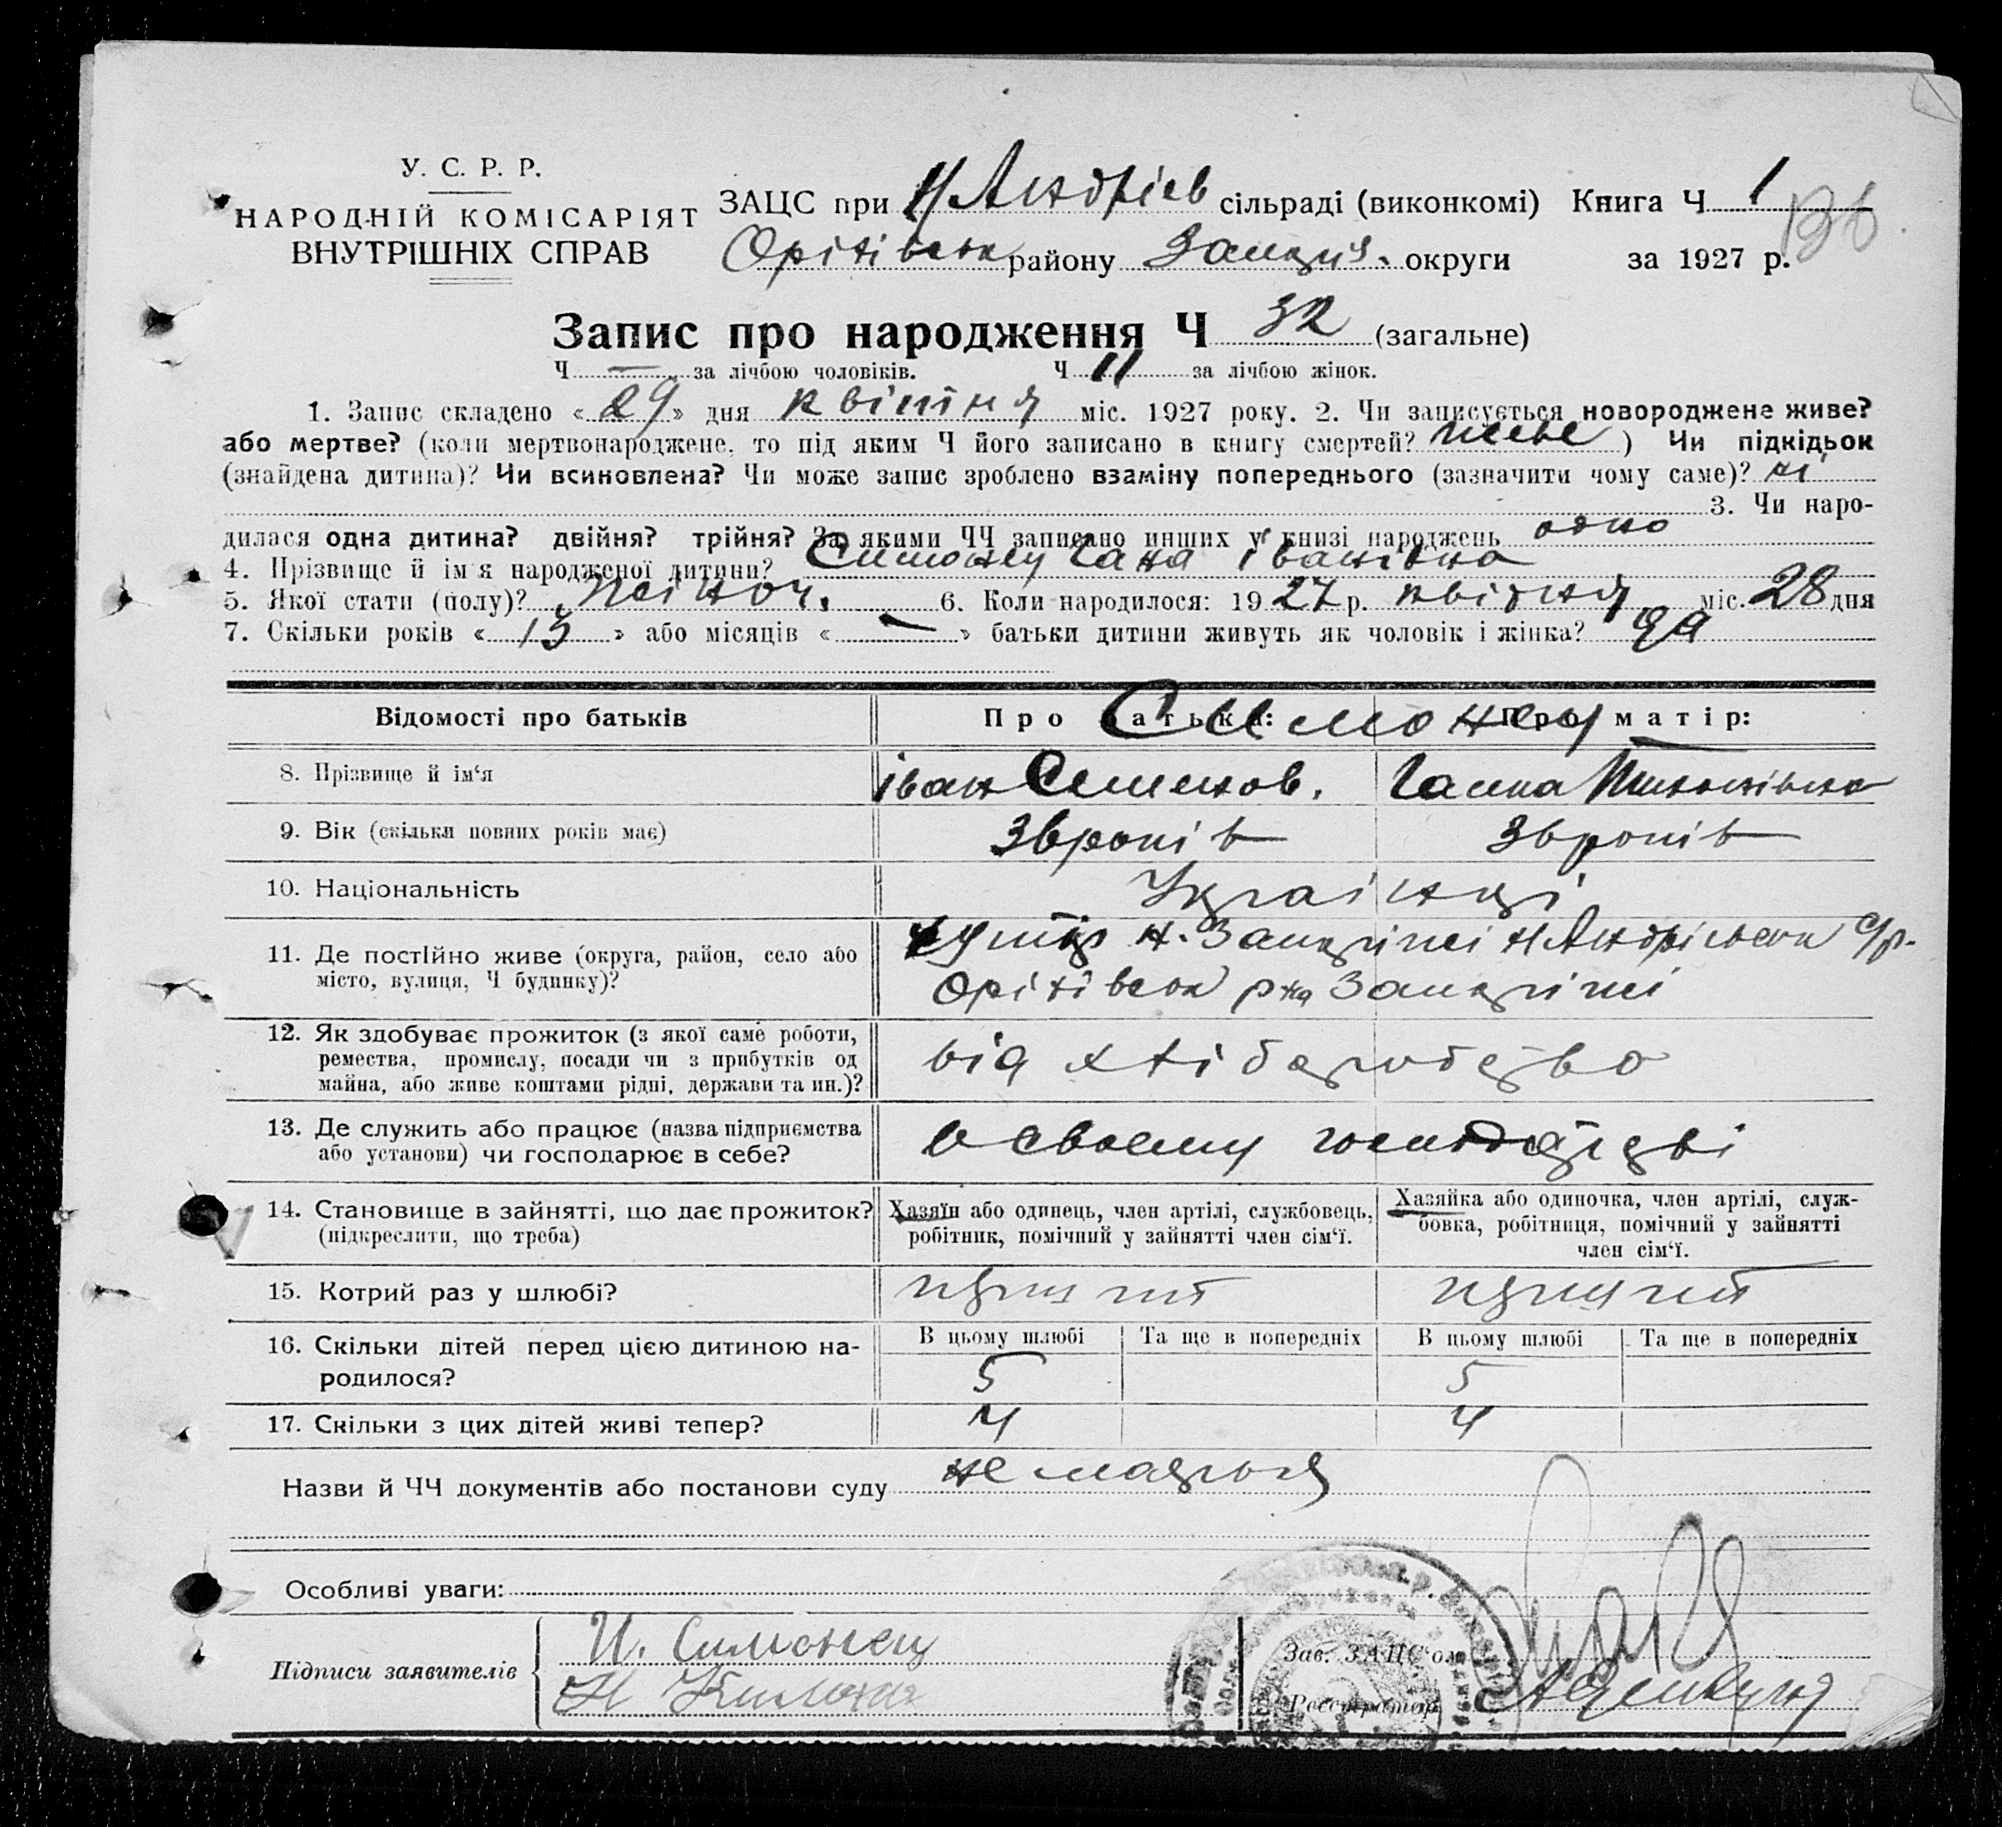 У. С. Р. Р.
НАРОДНІЙ КОМІСАРІЯТ
ВНУТРІШНІХ СПРАВ
ЗАЦС при Н Андріев сільраді (виконкомі) Книга Ч 1
136
Оріхівськ району Запоріз. округи за 1927 р.
Запис про народження Ч 32 (загальне)
Ч — за лічбою чоловіків. Ч 11 за лічбою жінок.
1. Запис складено « 29 » дня квітня міс. 1927 року. 2. Чи записується новороджене живе?
або мертве? (коли мертвонароджене, то під яким Ч його записано в книгу смертей? живе ) Чи підкідьок
(знайдена дитина)? Чи всиновлена? Чи може запис зроблено взаміну попереднього (зазначити чому саме)? ні
3. Чи наро-
дилася одна дитина? двійня? трійня? За якими ЧЧ записано инших у книзі народжень одно
4. Прізвище й ім'я народженої дитини? Симонец Гана Іванівна
5. Якої стати (полу)? жіноч. 6. Коли народилося: 1927 р. квітня міс. 28 дня
7. Скільки років « 15 » або місяців « — » батьки дитини живуть як чоловік і жінка? да
Відомості про батьків Про батька: Про матір:
Симонец
8. Прізвище й ім'я Іван Семенов. Ганна
9. Вік (скільки повних років має) 36 років 36 років
10. Національність Українці
11. Де постійно живе (округа, район, село або
місто, вулиця, Ч будинку)?
хутір Н. Запоріжжі Н Андрієвськ с/р.
Оріхівськ р-на Запоріжі
12. Як здобуває прожиток (з якої саме роботи,
ремества, промислу, посади чи з прибутків од
майна, або живе коштами рідні, держави та ин.)?
від хліборобства
13. Де служить або працює (назва підприємства
або установи) чи господарює в себе?
в своему господарстві
14. Становище в зайнятті, що дає прожиток?
(підкреслити, що треба)
Хазяїн або одинець, член артілі, службовець,
робітник, помічний у зайнятті член сім'ї.
Хазяйка або одиночка, член артілі, служ-
бовка, робітниця, помічний у зайнятті
член сім'ї.
15. Котрий раз у шлюбі? перший перший
16. Скільки дітей перед цією дитиною на-
родилося?
В цьому шлюбі Та ще в попередніх В цьому шлюбі Та ще в попередніх
5 5
17. Скільки з цих дітей живі тепер? 4 4
Назви й ЧЧ документів або постанови суду не мається
Особливі уваги:
Підписи заявителів
И. Симонец
Н
Зав. ЗАЦС'ом
Реєстратор